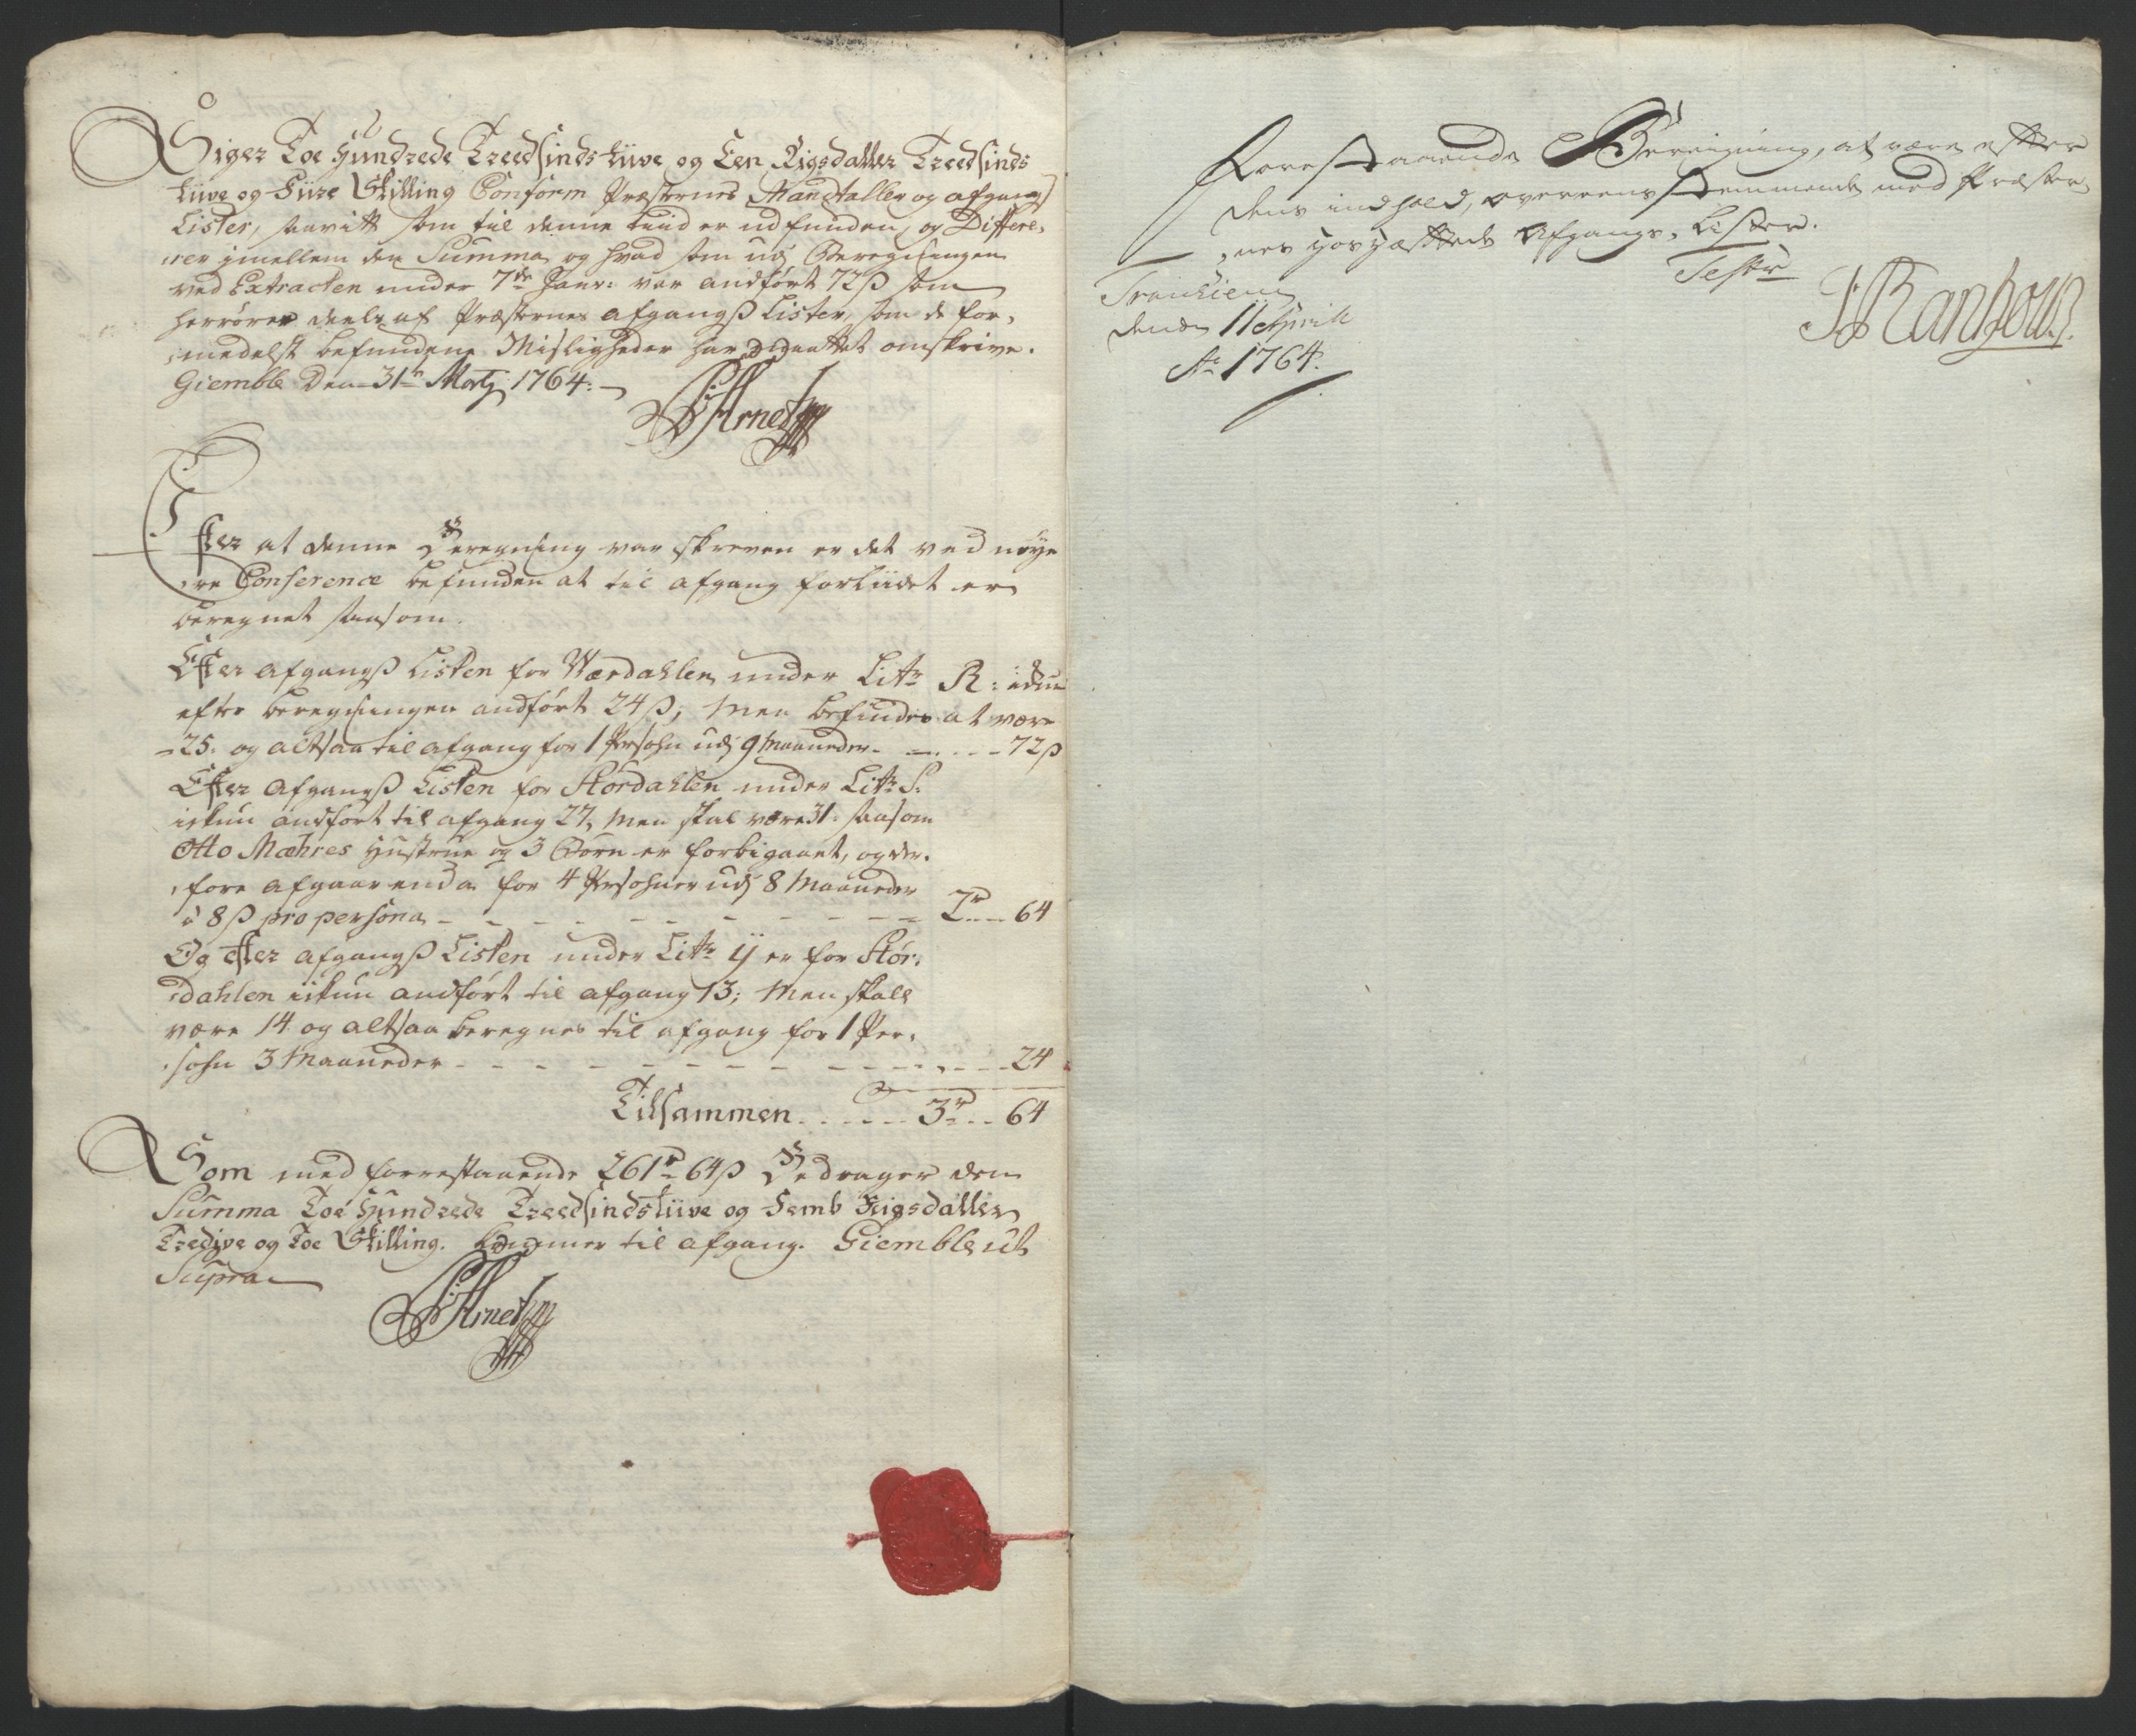 Siger Toe Hundrede Treedsinds Tiive og Een Rigsdaller Treedsinds
tiive og Fiire Skilling Conform Præsternes Mandtaller og afgangs
Lister, saavitt som til denne tiid er udfunden, og Differe-
rer imellem den Summa og hvad som udj Beregningen
ved Extracten under 7de Janr: var andført 72 ß som
herrører deels af Præsternes afgangß Lister, som de for-
medelst befundene Misligheder har maattet omskrive.
Giemble Den 31te Martj 1764.
Arnet
Efter at denne Beregning var skreven er det ved nøye
re Conference befunden at til afgang forliidet er
beregnet saasom.
Efter afgangß Listen for Værdahlen under Litr R: iduu
efter beregningen andført 24 ß, Men befindes at være
25. og altsaa til afgang for 1 Persohn udj 9 Maaneder - - - - 72 ß
Efter afgangß Listen for Størdahlen under Litr S:
ickun andført til afgang 27, Men skal være 31. saasom
Otto Mæhres Hustrue og 3 Børn er forbigaaet, og der-
fore afgaar enda for 4 Persohner udj 8 Maaneder
a 8 ß pro persona - - - - - - - - - - 2 rd - - 64
Og efter afgangß Listen under Litr y er for Stør-
dahlen ickun andført til afgang 13; Men skall
være 14 og altsaa beregnes til afgang for 1 Per-
sohn 3 Maaneder - - - - - - - - - - - - 24
Tilsammen - - - - 3 rd - - 64
Som med forrestaaende 261 rd 64 ß Bedrager den
Summa Toe Hundrede Treedsindstiive og Femb Rigsdaller
Tredive og Toe Skilling. kommer til afgang. Giemble ut
Supra
Arnet
Forestaaende Beregning, at være efter
dens indhold, overeensstemmende med Præster-
nes hoshæftede Afgangs-Lister.
Testr
Tronhiem
denn 11 Aprill
Ao 1764.